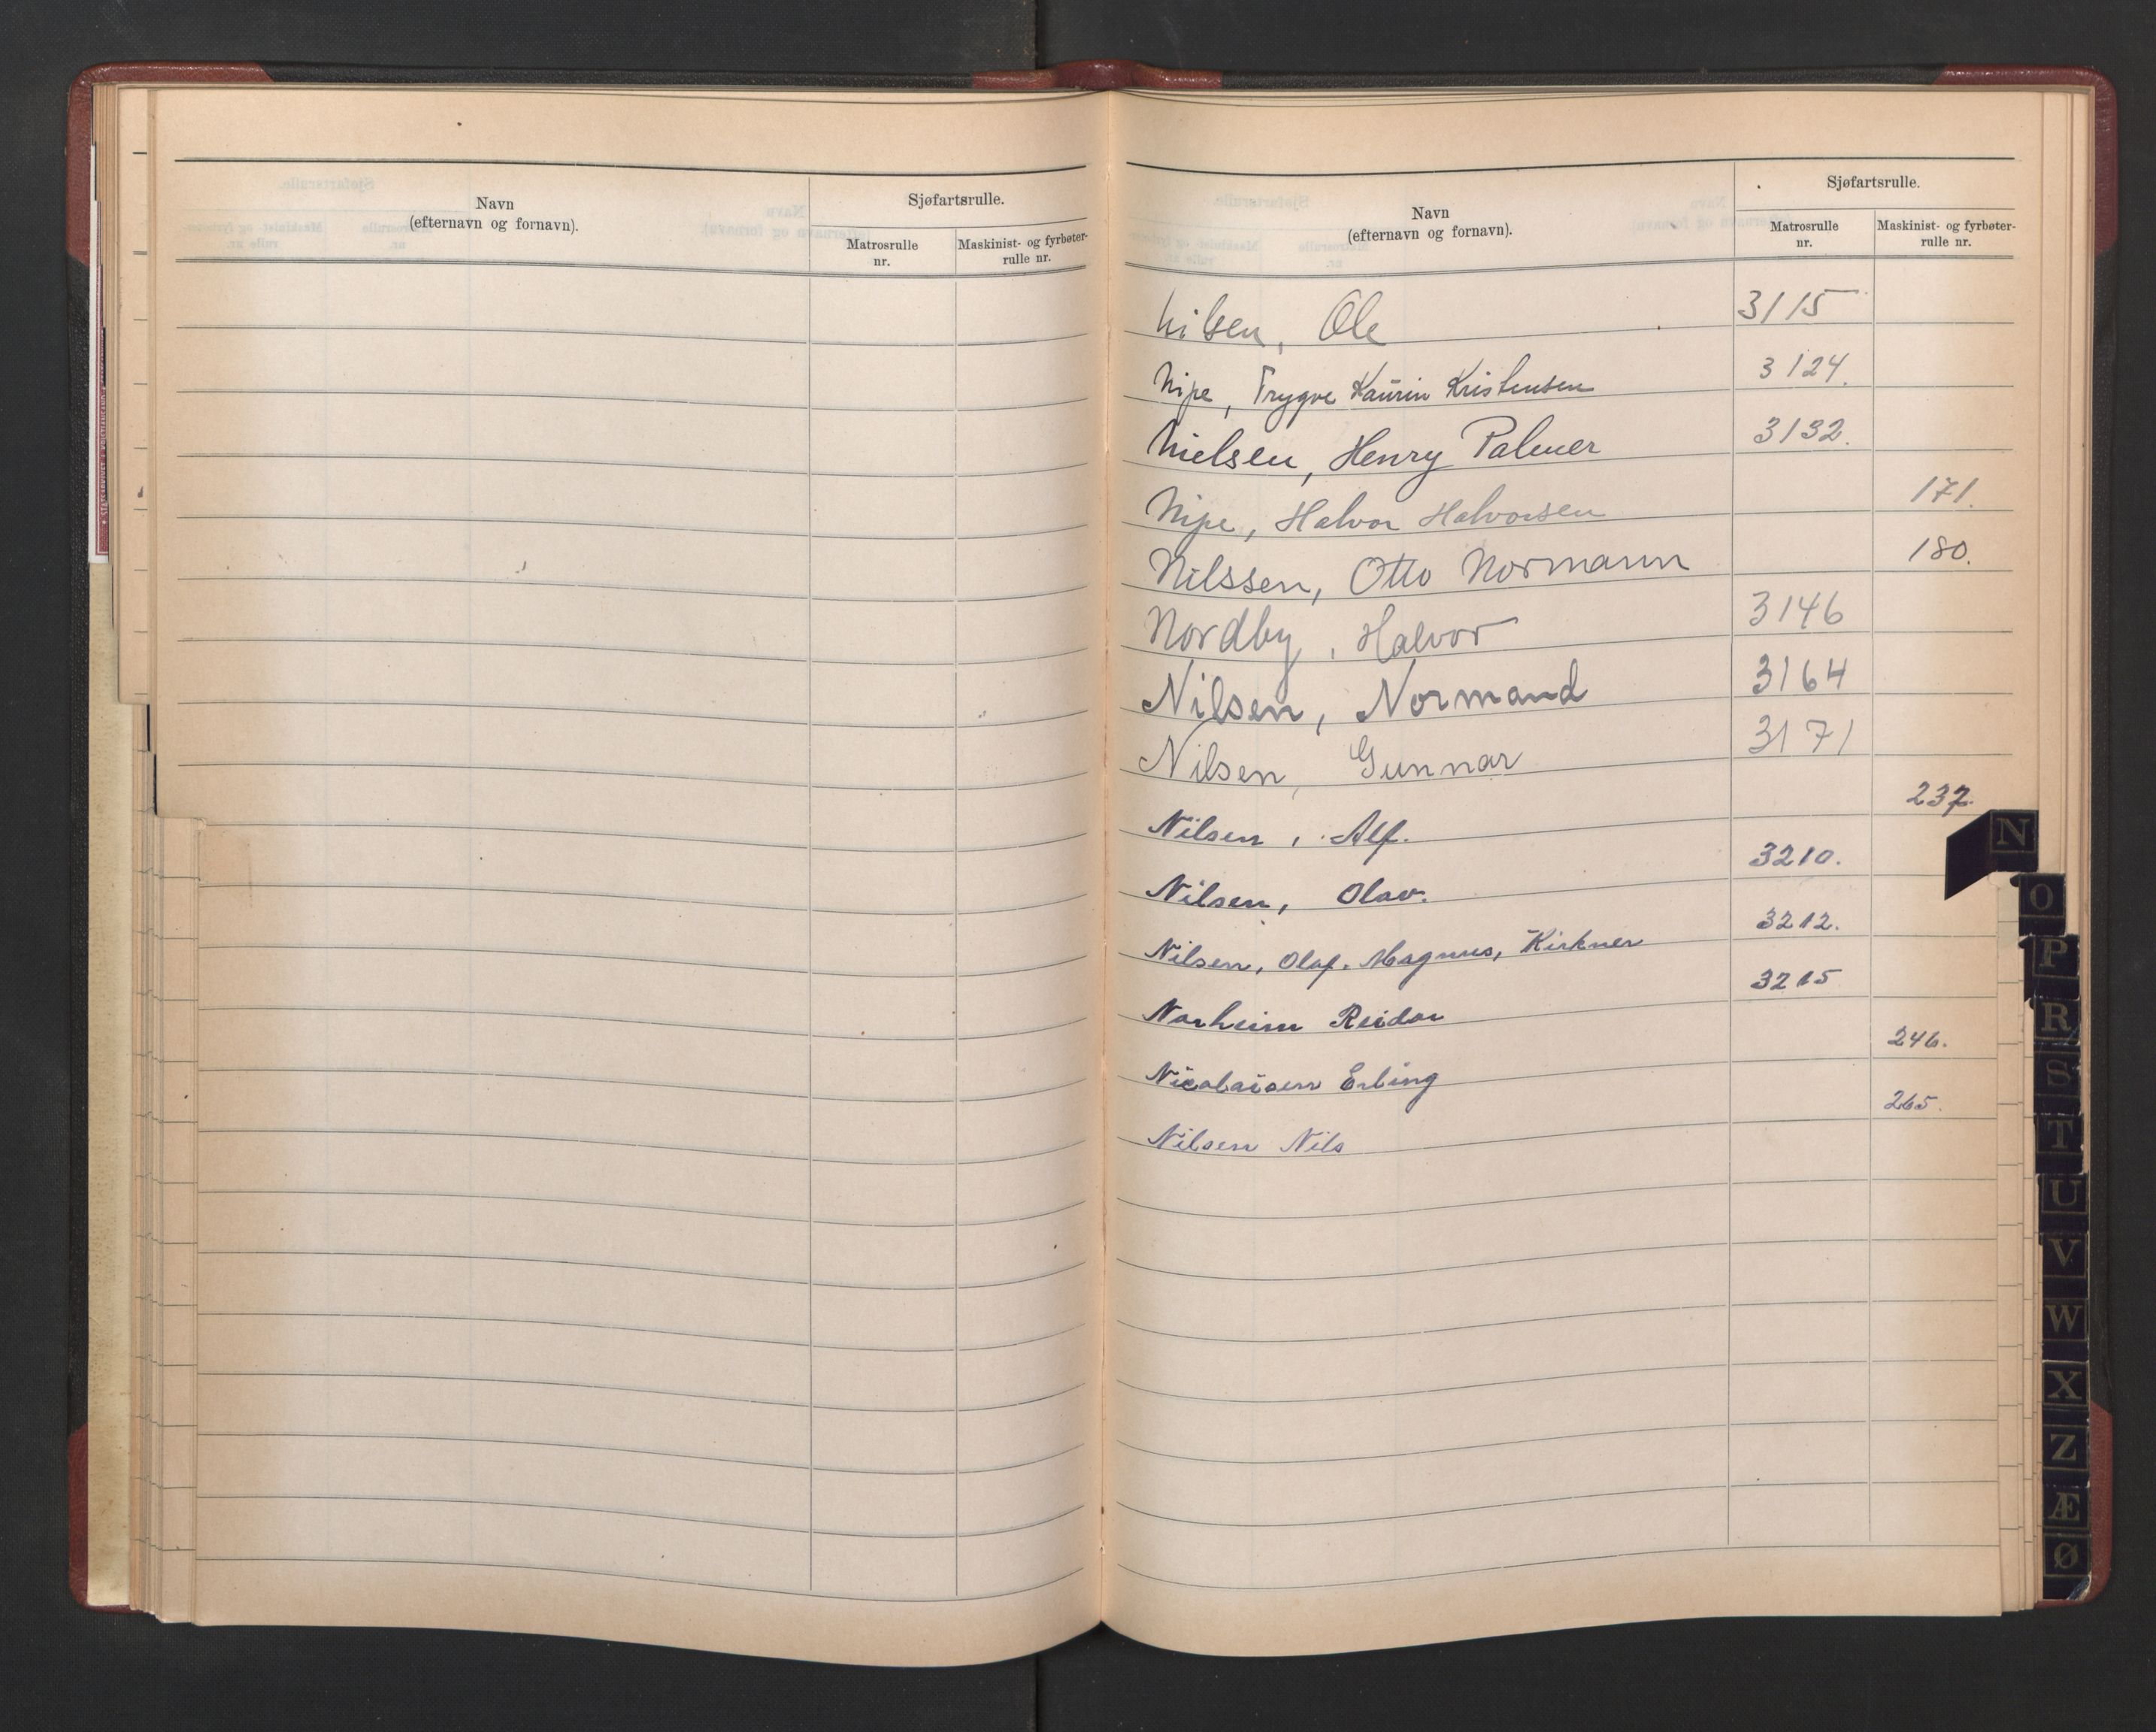 Navn
(efternavn og fornavn).
Sjøfartsrulle.
Matrosrulle
nr.
Maskinist- og fyrbøter-
rulle nr.
Navn
(efternavn og fornavn).
Sjøfartsrulle.
Matrosrulle
nr.
Maskinist- og fyrbøter-
rulle nr.
Nilsen, Ole 3115
Nipe, Trygve Kaurin Kristensen 3124.
Nielsen, Henry Palmer 3132.
Nipe, Halvor Halvorsen 171.
Nilssen, Otto Normann 180.
Nordby, Halvor 3146
Nilsen, Normand 3164
Nilsen, Gunnar 3171
Nilsen, Alf. 237.
Nilsen, Olav. 3210.
Nilsen, Olaf. Magnus, Kirkner 3212.
Norheim Reidar 3215
Nicolaisen Erling 246.
Nilsen Nils 265.
N
O
P
R
S
T
U
V
W
X
Z
Æ
Ø